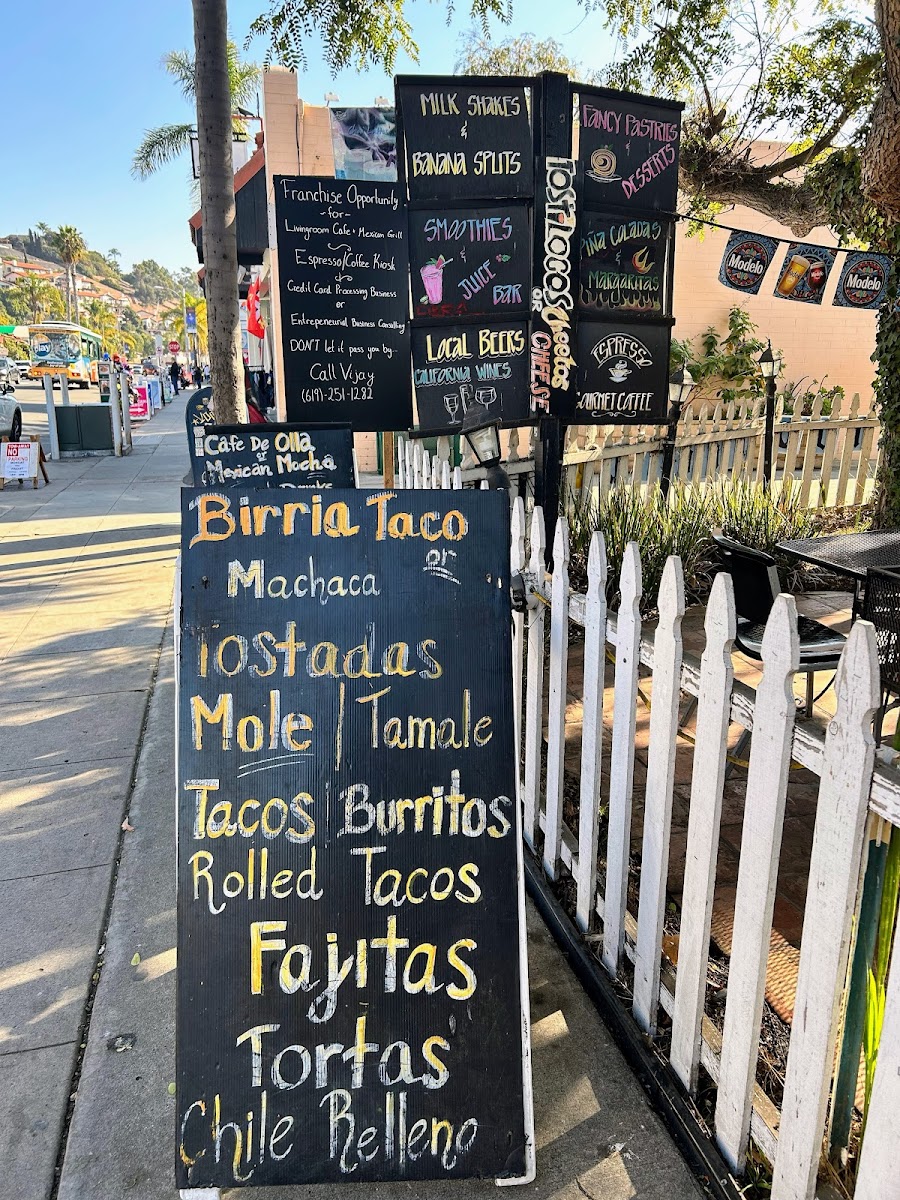 MILK SHAKES
&
BANANA SPLITS
FANCY PASTRIES
&
DESSERTS
Franchise Opportunity
-for-
Livingroom Cafe & Mexican Grill
Espresso/Coffee Kiosk
Credit Card Processing Business
or
Entrepeneurial Business Consulting
DON'T let it pass you by...
Call Vijay
(619)-251-1282
SMOOTHIES
&
JUICE
BAR
Piña Coladas
&
MARGARITAS
TOSTILOCOS
OR
Cheetos
CHEESE
LOCAL BEERS
CALIFORNIA WINES
ESPRESSO
GOURMET COFFEE
Modelo
Modelo
Cafe De Olla
or
Mexican Mocha
NO
PARKING
Birria Taco
or
Machaca
Tostadas
Mole | Tamale
Tacos | Burritos
Rolled Tacos
Fajitas
Tortas
Chile Relleno